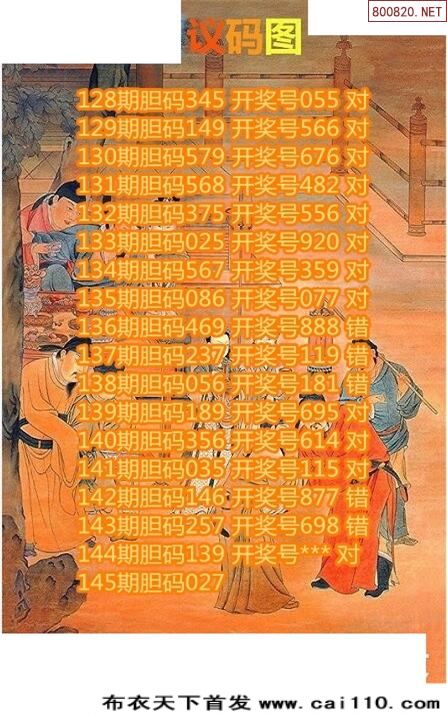 800820.NET
议码图
128期胆码345 开奖号055 对
129期胆码149 开奖号566 对
130期胆码579 开奖号676 对
131期胆码568 开奖号482 对
132期胆码375 开奖号556 对
133期胆码025 开奖号920 对
134期胆码567 开奖号359 对
135期胆码086 开奖号077 对
136期胆码469 开奖号888 错
137期胆码237 开奖号119 错
138期胆码056 开奖号181 错
139期胆码189 开奖号695 对
140期胆码356 开奖号614 对
141期胆码035 开奖号115 对
142期胆码146 开奖号877 错
143期胆码257 开奖号698 错
144期胆码139 开奖号*** 对
145期胆码027
布衣天下首发 www.cai110.com